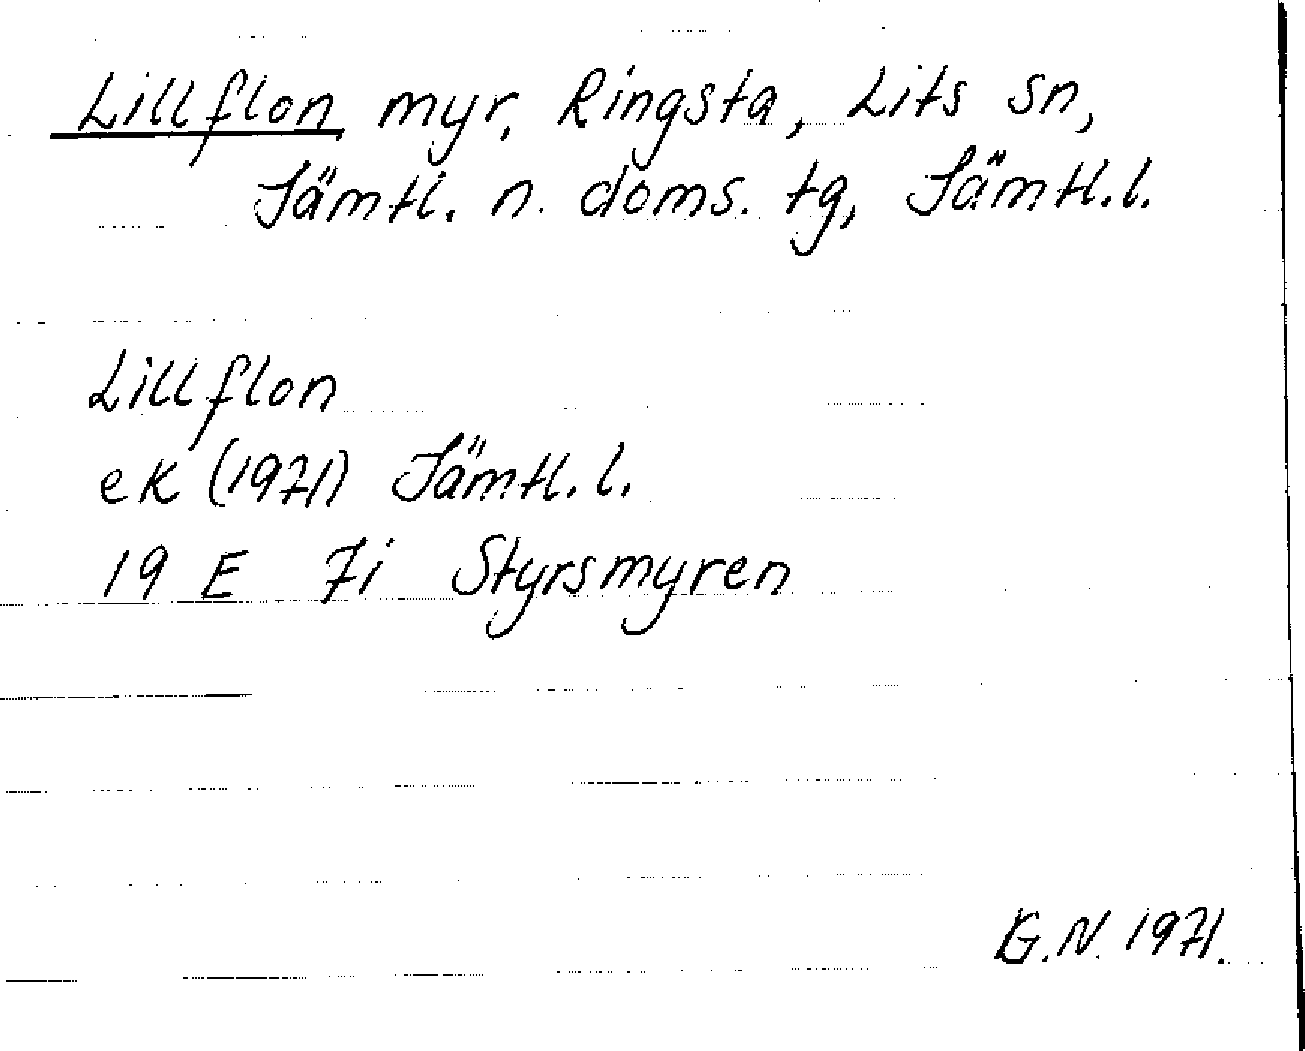 Lillflon, myr, Ringsta, Lits sn,
Jämtl. n. doms. tg, Jämtl. l.
Lillflon
ek (1971) Jämtl. l.
19 E 7i Styrsmyren
G.N. 1971.